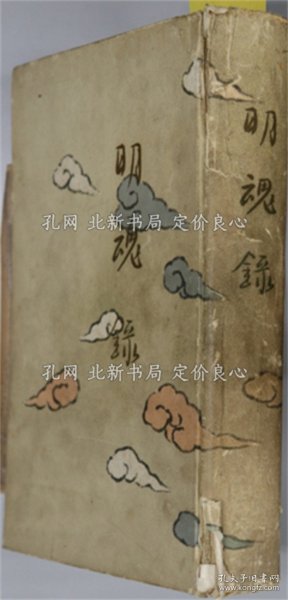 明魂錄
明魂錄
孔网 北新书局 定价良心
孔网 北新书局 定价良心
孔夫子旧书网
www.kongfz.com